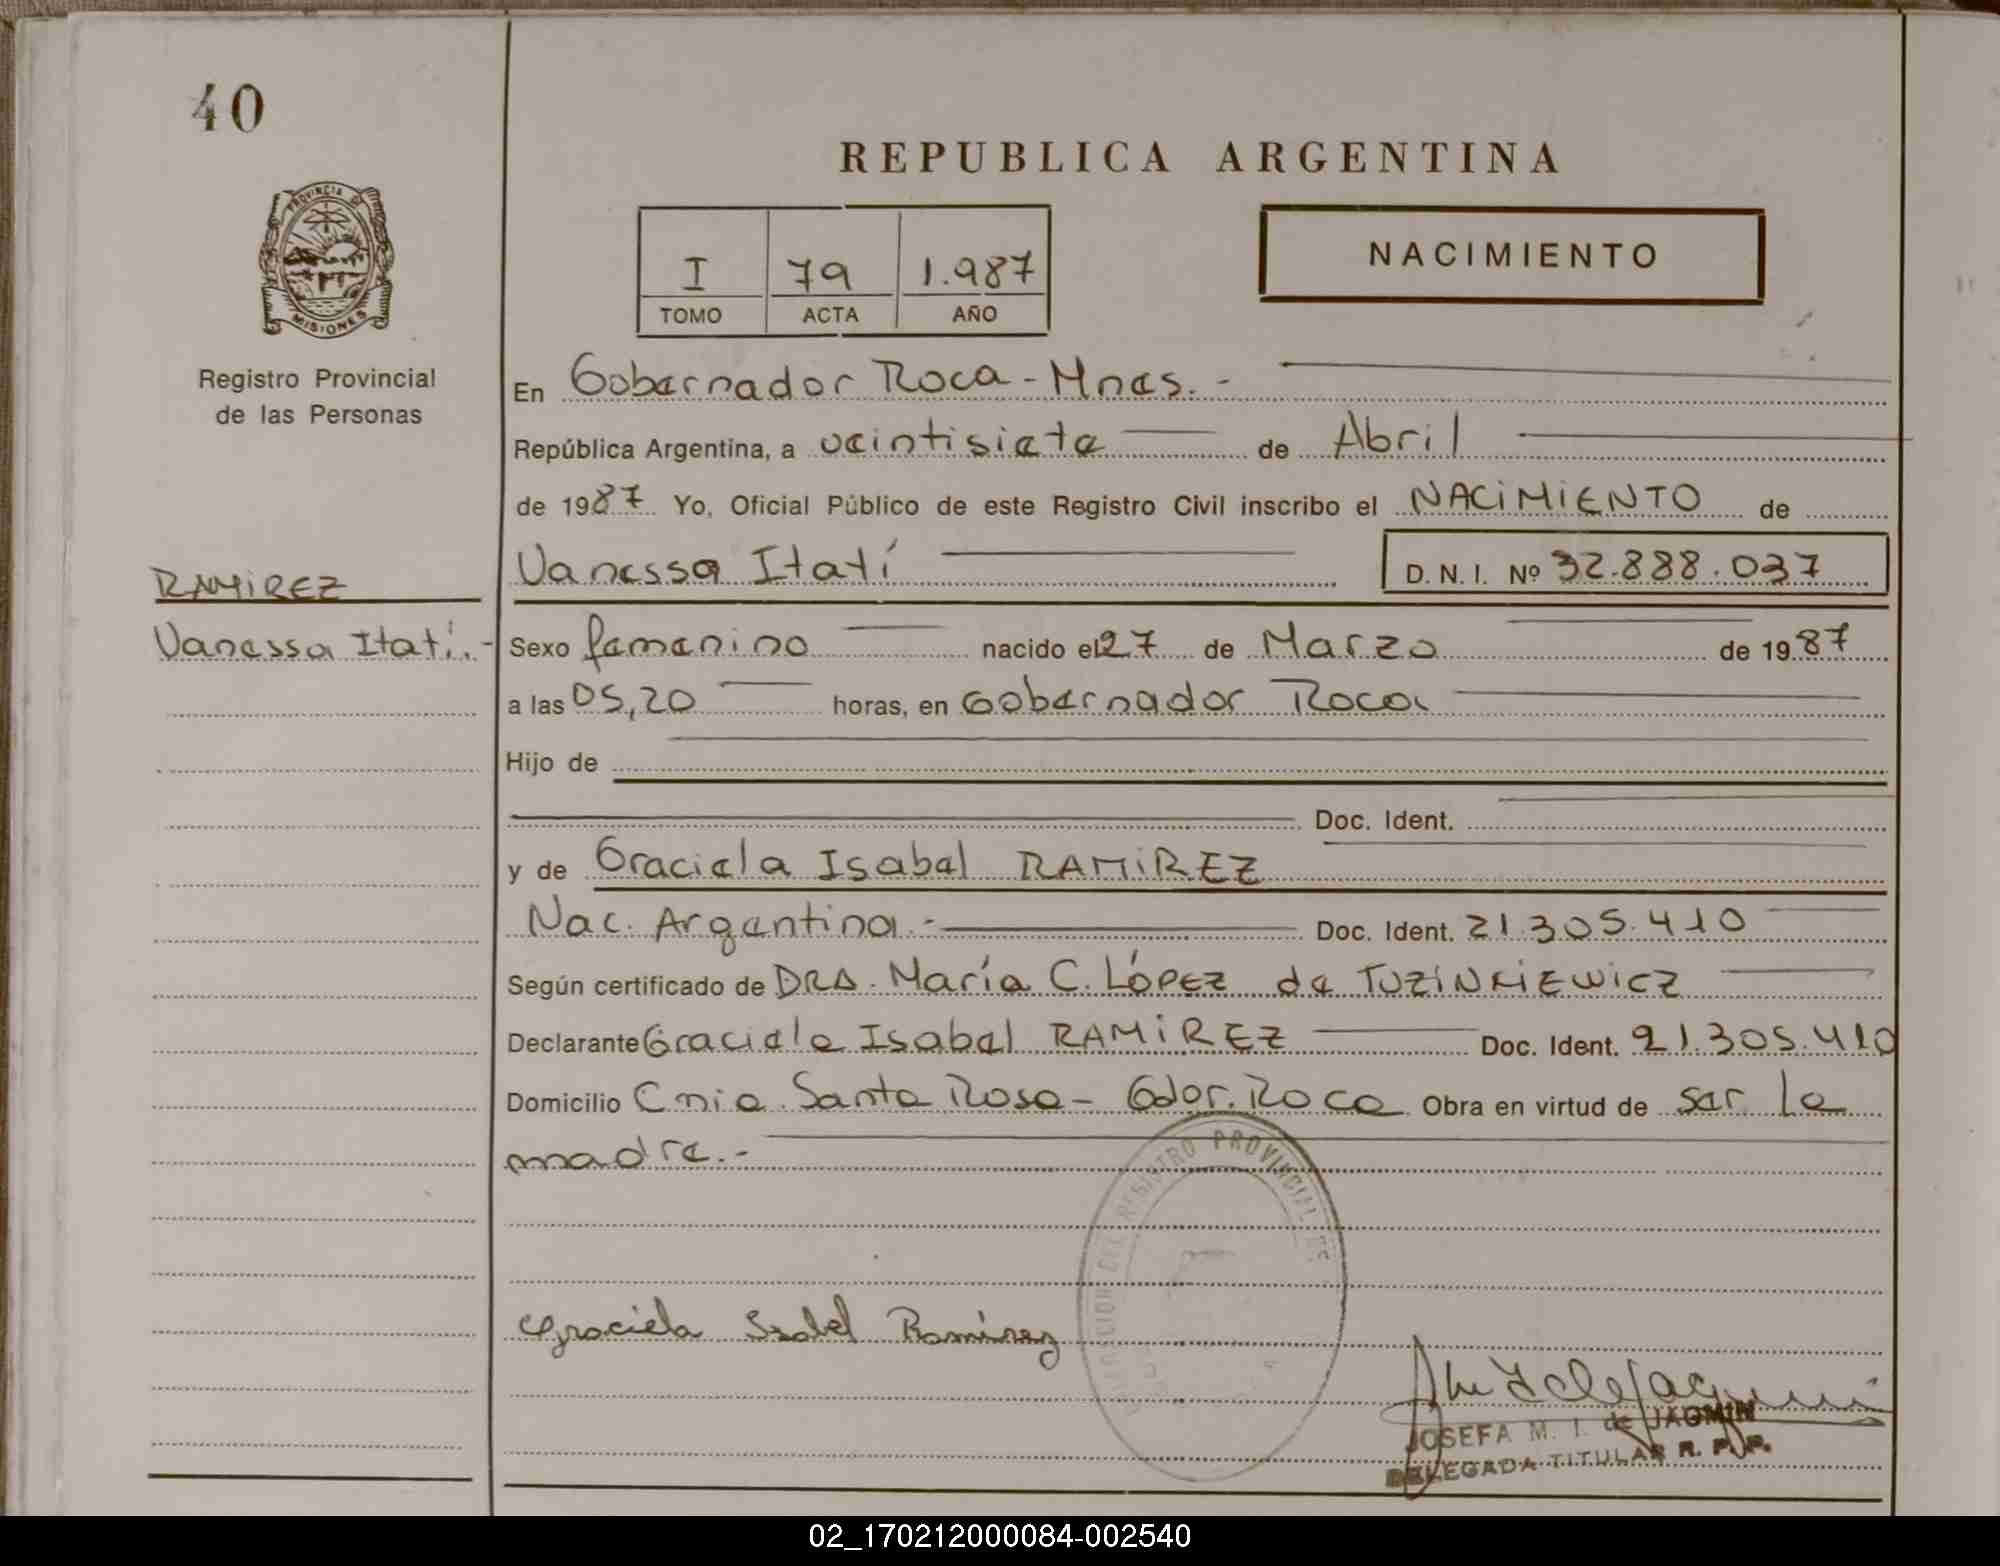 40
REPUBLICA ARGENTINA
PROVINCIA DE
MISIONES
I 79 1.987
TOMO ACTA AÑO
NACIMIENTO
Registro Provincial
de las Personas
En Gobernador Roca - Mnes. -
República Argentina, a veintisiete de Abril
de 1987 Yo, Oficial Público de este Registro Civil inscribo el NACIMIENTO de
Vanessa Itatí D. N. I. Nº 32.888.037
RAMIREZ
Vanessa Itatí.-
Sexo femenino nacido el 27 de Marzo de 1987
a las 05,20 horas, en Gobernador Roca
Hijo de
Doc. Ident.
y de Graciela Isabel RAMIREZ
Nac. Argentina.- Doc. Ident. 21.305.410
Según certificado de DRA. María C. LÓPEZ de TUZINKIEWICZ
Declarante Graciela Isabel RAMIREZ Doc. Ident. 21.305.410
Domicilio Cnia. Santa Rosa - Gdor. Roca Obra en virtud de ser la
madre.-
DEL REGISTRO PROVINCIAL DE
Graciela Isabel Ramirez
JOSEFA M. I. de JAGMIN
DELEGADA TITULAR R. P. P.
02_170212000084-002540